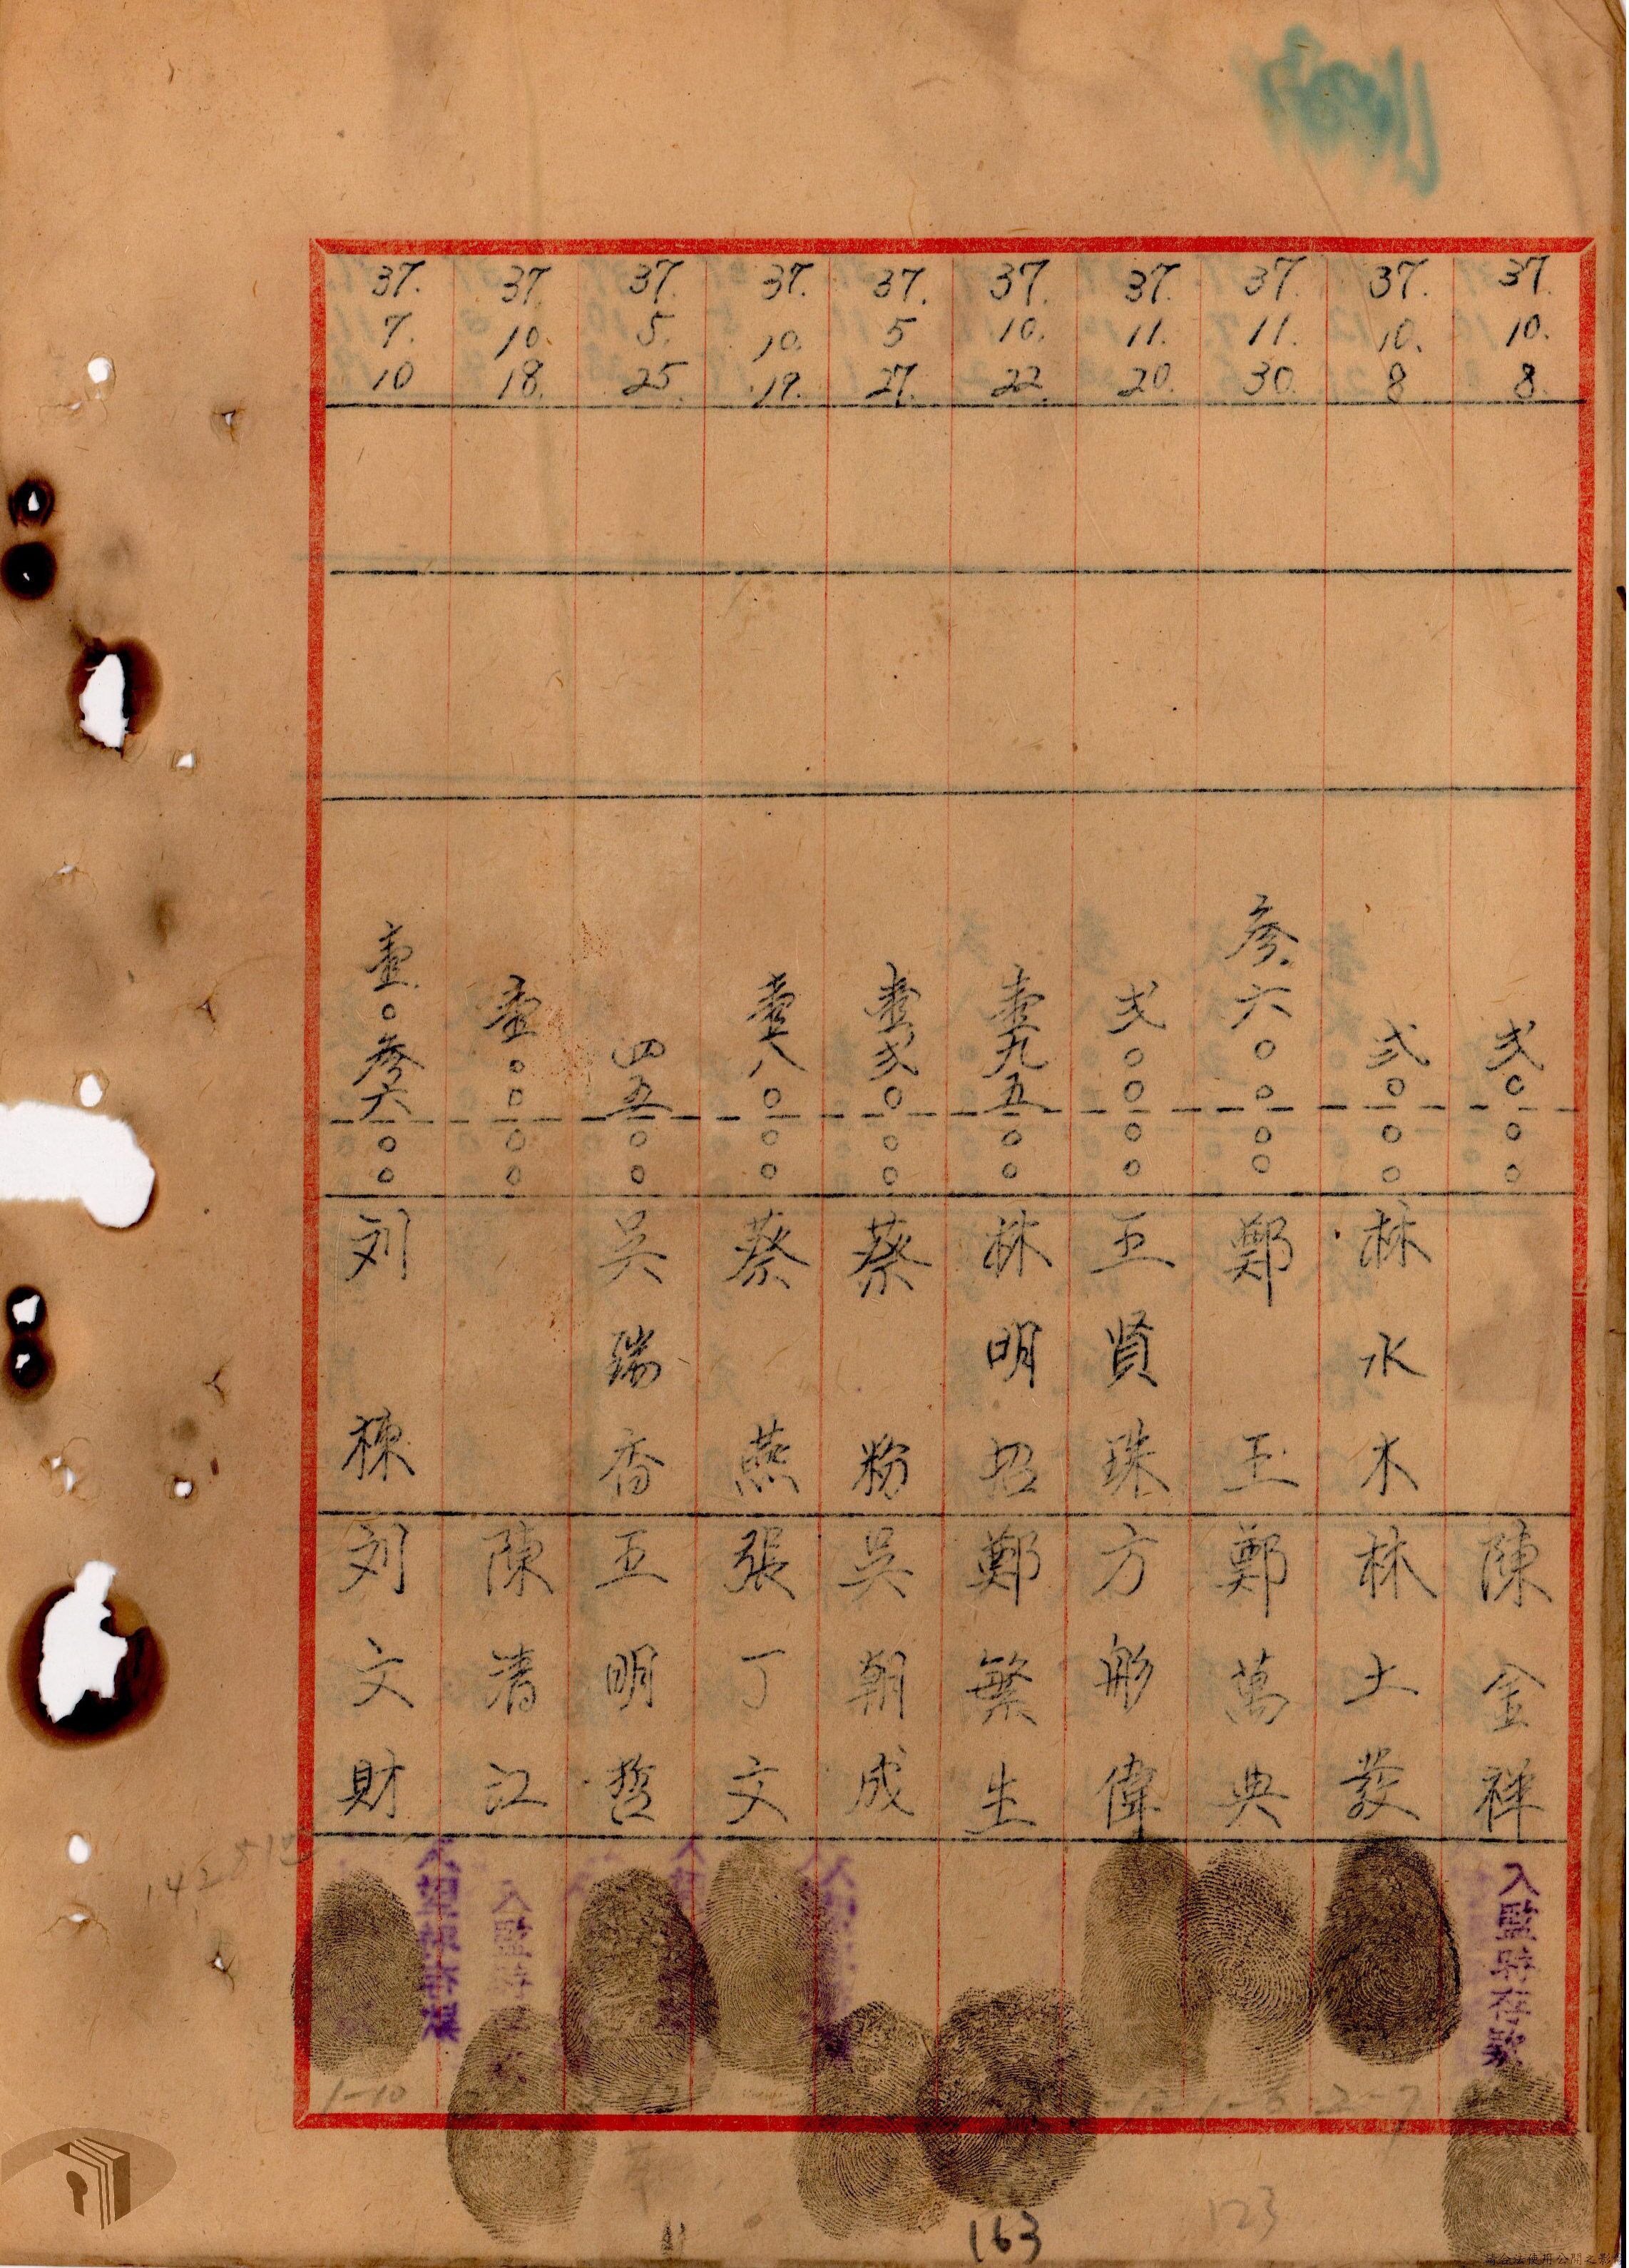 37. 10. 8. 弍〇〇〇 陳金禅 入監時存款
37. 10. 8 弍〇〇〇 林水木 林土發
37. 11. 30. 参六〇〇〇〇 鄭玉 鄭萬典
37. 11. 20. 弍〇〇〇〇 王賢珠 方彤偉
37. 10. 22. 壹九五〇〇 林明招 鄭繁生
37. 5 27. 壹弍〇〇〇 蔡粉 吳朝成
37. 10. 19. 壹八〇〇〇 蔡燕 張丁文
37. 5. 25. 四五〇〇 吳瑞香 王明哲
37. 10. 18. 壹〇〇〇〇 陳清江 入監時
37. 7. 10 壹〇参六〇〇 刘棟 刘文財
1-10
2-7
163
123